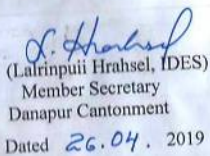 L. Hrahsel
(Lalrinpuii Hrahsel, IDES)
Member Secretary
Danapur Cantonment
Dated 26.04. 2019